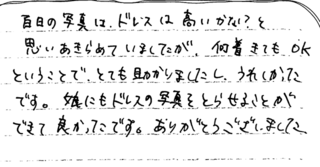 百日の写真は、ドレスは高いかな?と
思いあきらめていましたが、何着きてもOK
ということで、とても助かりましたし、うれしかった
です。娘にもドレスの写真をとらせることが
できて良かったです。ありがとうございました